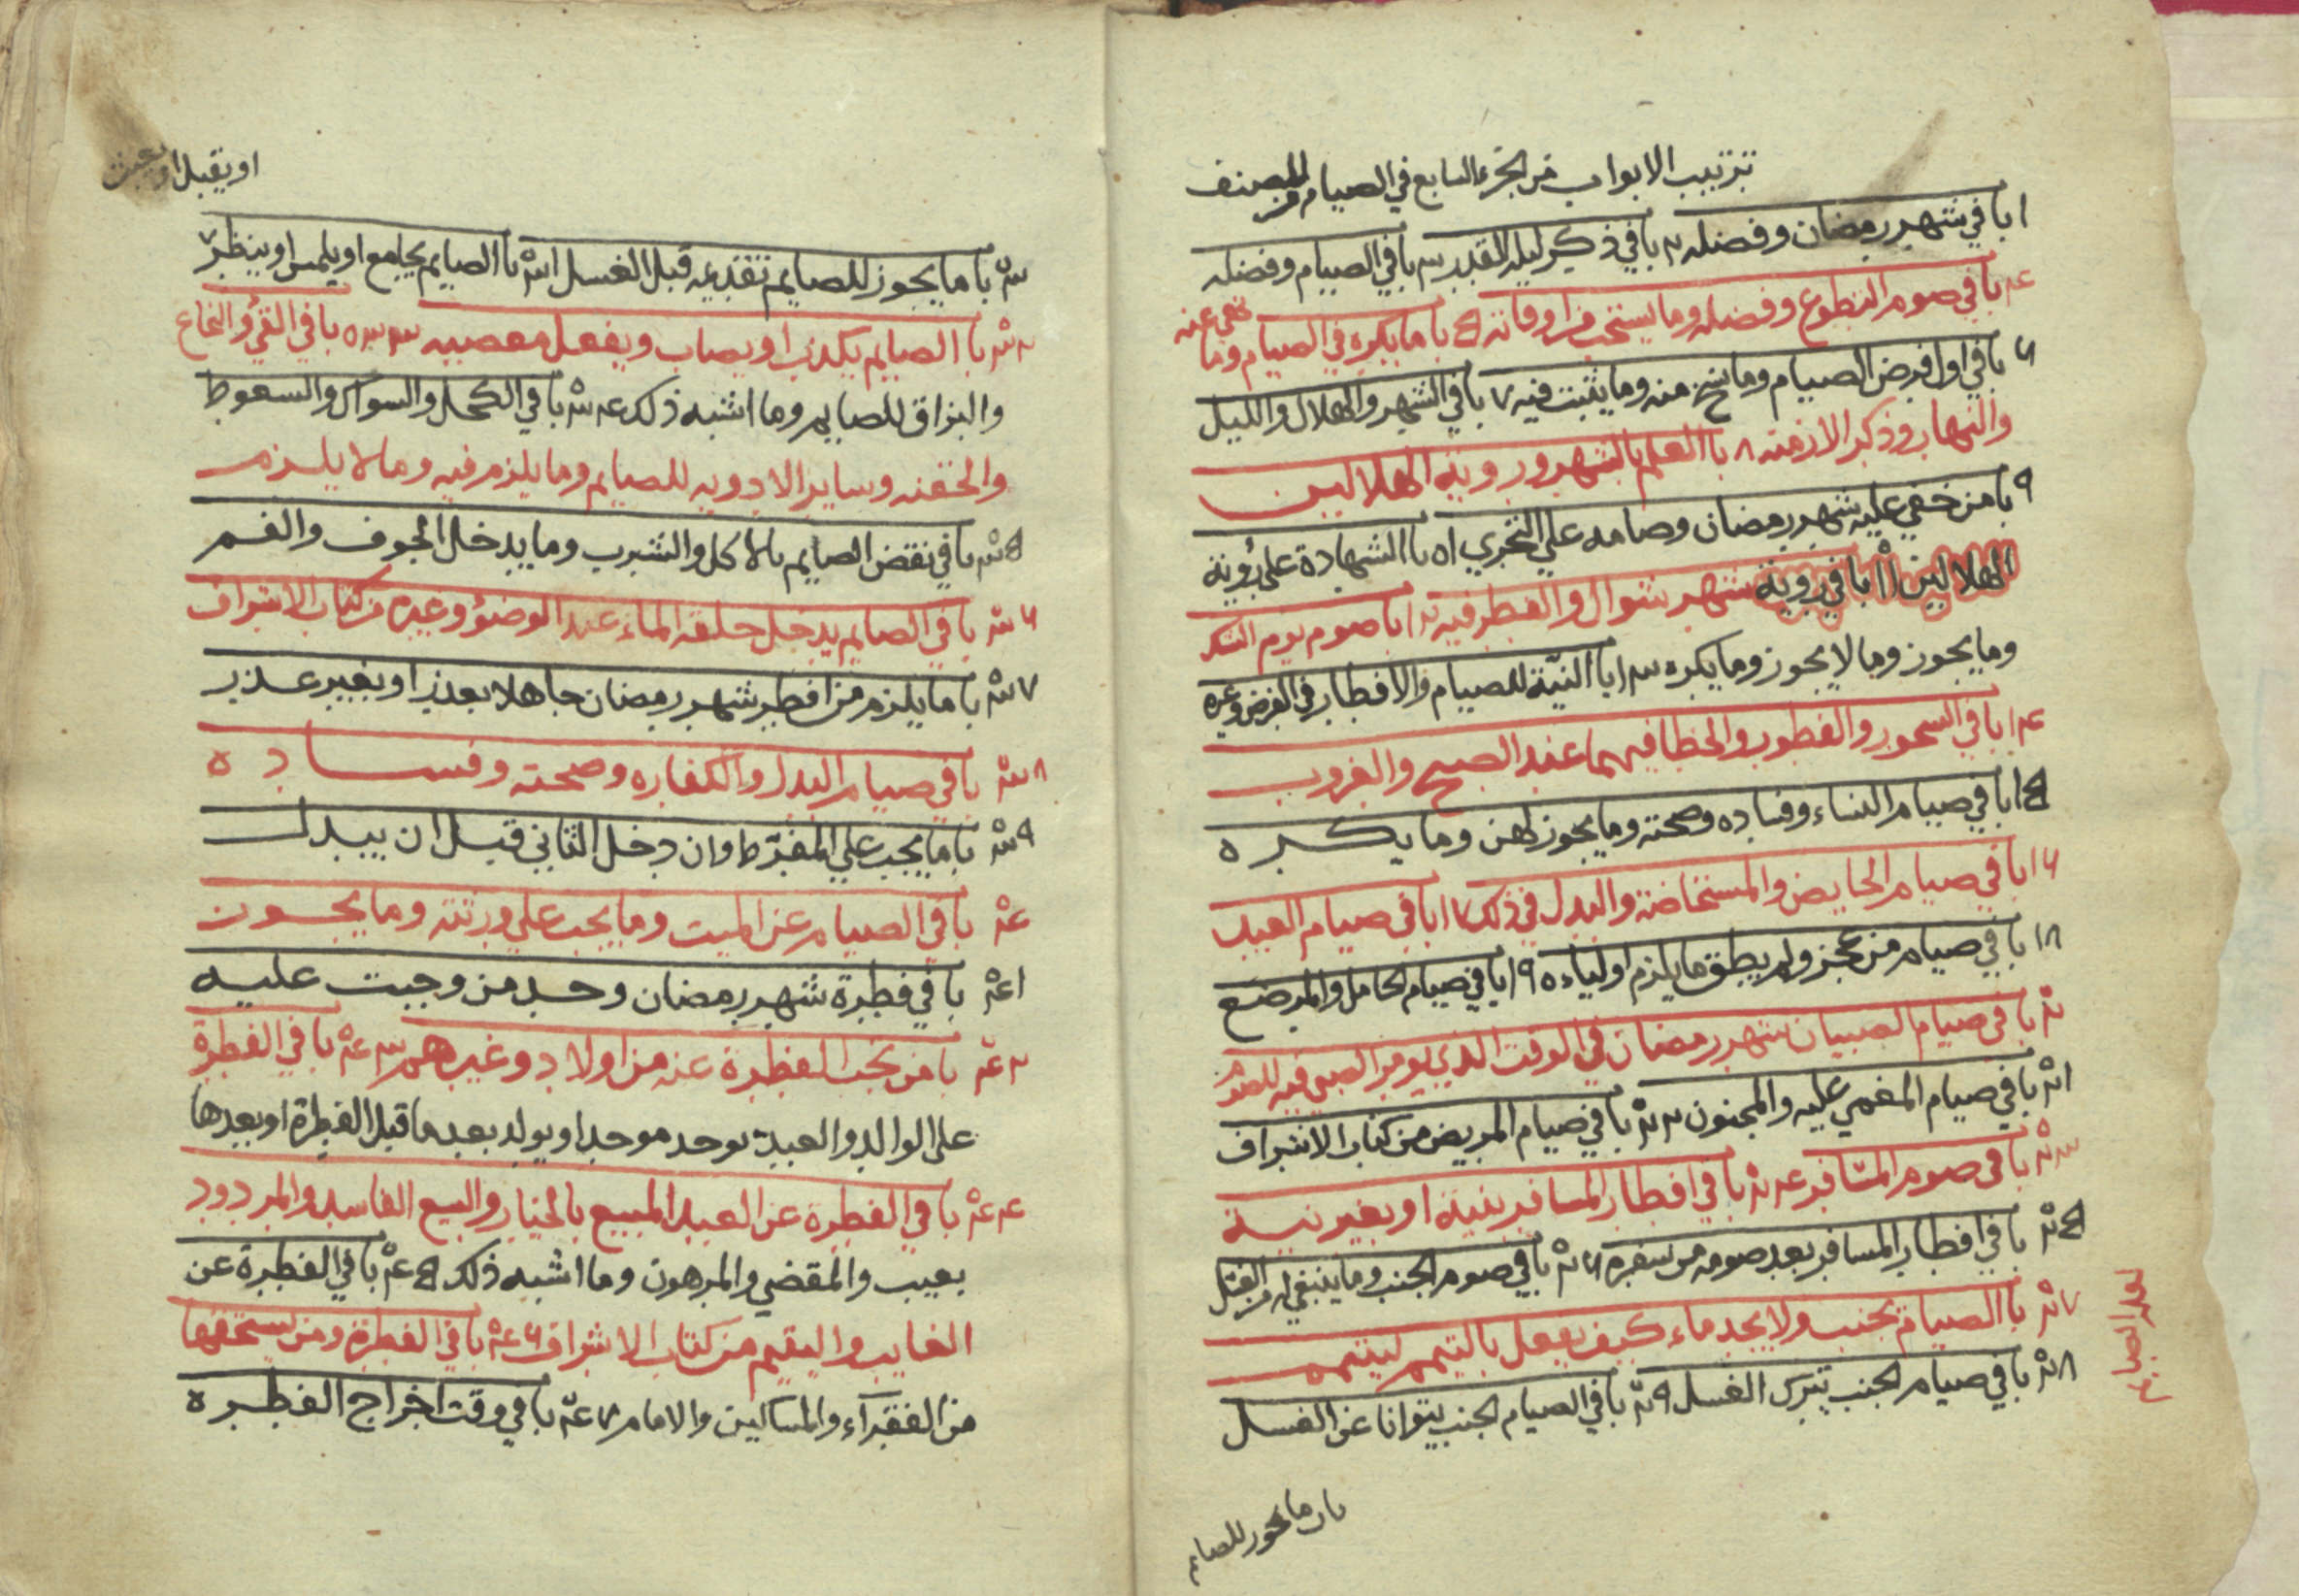 ترتيب الابواب من الجزء السابع في الصيام من المصنف
ا با في شهر رمضان وفضله ٢ با في ذكر ليلة القدر ٣ با في الصيام وفضله
٤ با في صوم التطوع وفضله وما يستحب من اوقاته ٥ با ما يكره في الصيام وما نهي عنه
٦ با في اول فرض الصيام وما نسخ منه وما يثبت فيه ٧ با في الشهر والهلال والليل
والنهار وذكر الازمنه ٨ با العلم بالشهور وروية الهلالين
٩ با من خفي عليه شهر رمضان وصامه علي التحري ١٠ با الشهادة على رؤية
الهلالين ١١ با في روية شهر شوال والفطر فيه ١٢ با صوم يوم الشك
وما يجوز وما لا يجوز وما يكره ١٣ با النيّة للصيام والافطار في الفرض وغيره
١٤ با في السحور والفطور والخطا فيهما عند الصبح والغروب
١٥ با في صيام النساء وفساده وصحته وما يجوز لهن وما يكره
١٦ با في صيام الحايض والمستحاضة والبدل في ذلك ١٧ با في صيام العبيد
١٨ با في صيام من عجز ولم يطق ما يلزم اولياءه ١٩ با في صيام الحامل والمرضع
٢٠ با في صيام الصبيان شهر رمضان في الوقت الذي يومر الصبي فيه للصوم
٢١ با في صيام المغمي عليه والمجنون ٢٢ با في صيام المريض من كتاب الاشراف
٢٣ با في صوم المسافر ٢٤ با في افطار المسافر بنية او بغير نية
٢٥ با في افطار المسافر بعد صومه من سفره ٢٦ با في صوم الجنب وما ينبغي له من الغسل
٢٧ با الصيام بجنب ولا يجد ماء كيف يفعل بالتيمم
٢٨ با في صيام الجنب بترك الغسل ٢٩ با في الصيام الجنب يتوانا عن الغسل
باب ما يجوز للصايم
او يقبل او يعبث
٣٠ با ما يجوز للصايم قبل الغسل ٣١ با الصايم يجامع او يلمس او ينظر
٣٢ با الصايم يكذب او يصاب ويفعل معصيه ٣٣ با في القيؤ والنخاع
والبزاق للصايم وما اشبه ذلك ٣٤ با في الكحل والسواك والسعوط
والحقنه وساير الادويه للصايم وما يلزم فيه وما لا يلزم
٣٥ با في نقض الصايم بالاكل والشرب وما يدخل الجوف والفم
٣٦ با في الصايم يدخل حلقه الماء عند الوضؤ وغيره من كتاب الاشراف
٣٧ با ما يلزم من افطر شهر رمضان جاهلا بعذر او بغير عذر
٣٨ با في صيام البدل والكفاره وصحته وفساده
٣٩ با ما يجب علي المفرّط وان دخل الثاني قبل ان يبدل
٤٠ با في الصيام عن الميت وما يجب علي ورثته وما يجوز
٤١ با في فطرة شهر رمضان وحد من وجبت عليه
٤٢ با من تجب الفطرة عنه من اولاد وغيرهم ٤٣ با في الفطرة
على الوالد والعبد يوجد موجدا ويولد بعد ما قبل الفطرة او بعدها
٤٤ با في الفطرة عن العبد المبيع بالخيار والبيع الفاسد والمردود
بعيب والمقضي والمرهون وما اشبه ذلك ٤٥ با في الفطرة عن
الغايب واليتيم من كتاب الاشراف ٤٦ با في الفطرة ومن يستحقها
من الفقراء والمساكين والامام ٤٧ با في وقت اخراج الفطره